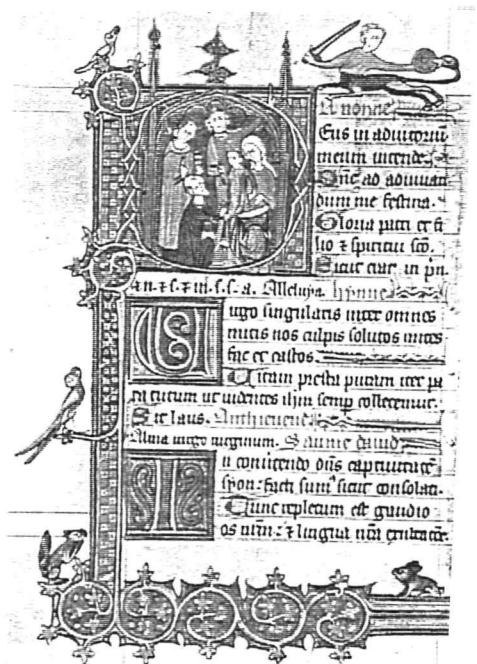 A nonne
Deus in adiutoriū
meum intende.
Dne ad adiuuan
dum me festina.
Gloria patri et fi
lio ⁊ spiritui sco.
Sicut erat in prin.
⁊ n. ⁊ s. ⁊ in s. s. a. Alleluya. hynne
Uirgo singularis inter omnes
mitis nos culpis solutos mites
fac et castos.
Uitam presta puram iter pa
ra tutum ut uidentes ihm semp colletemur.
Sit laus. Anthievene
Alma uirgo uirginum. Saume dauid
In conuertendo dns captiuitatē
syon: facti sumꝰ sicut consolati.
Tunc repletum est gaudio
os nrm: ⁊ lingua nra